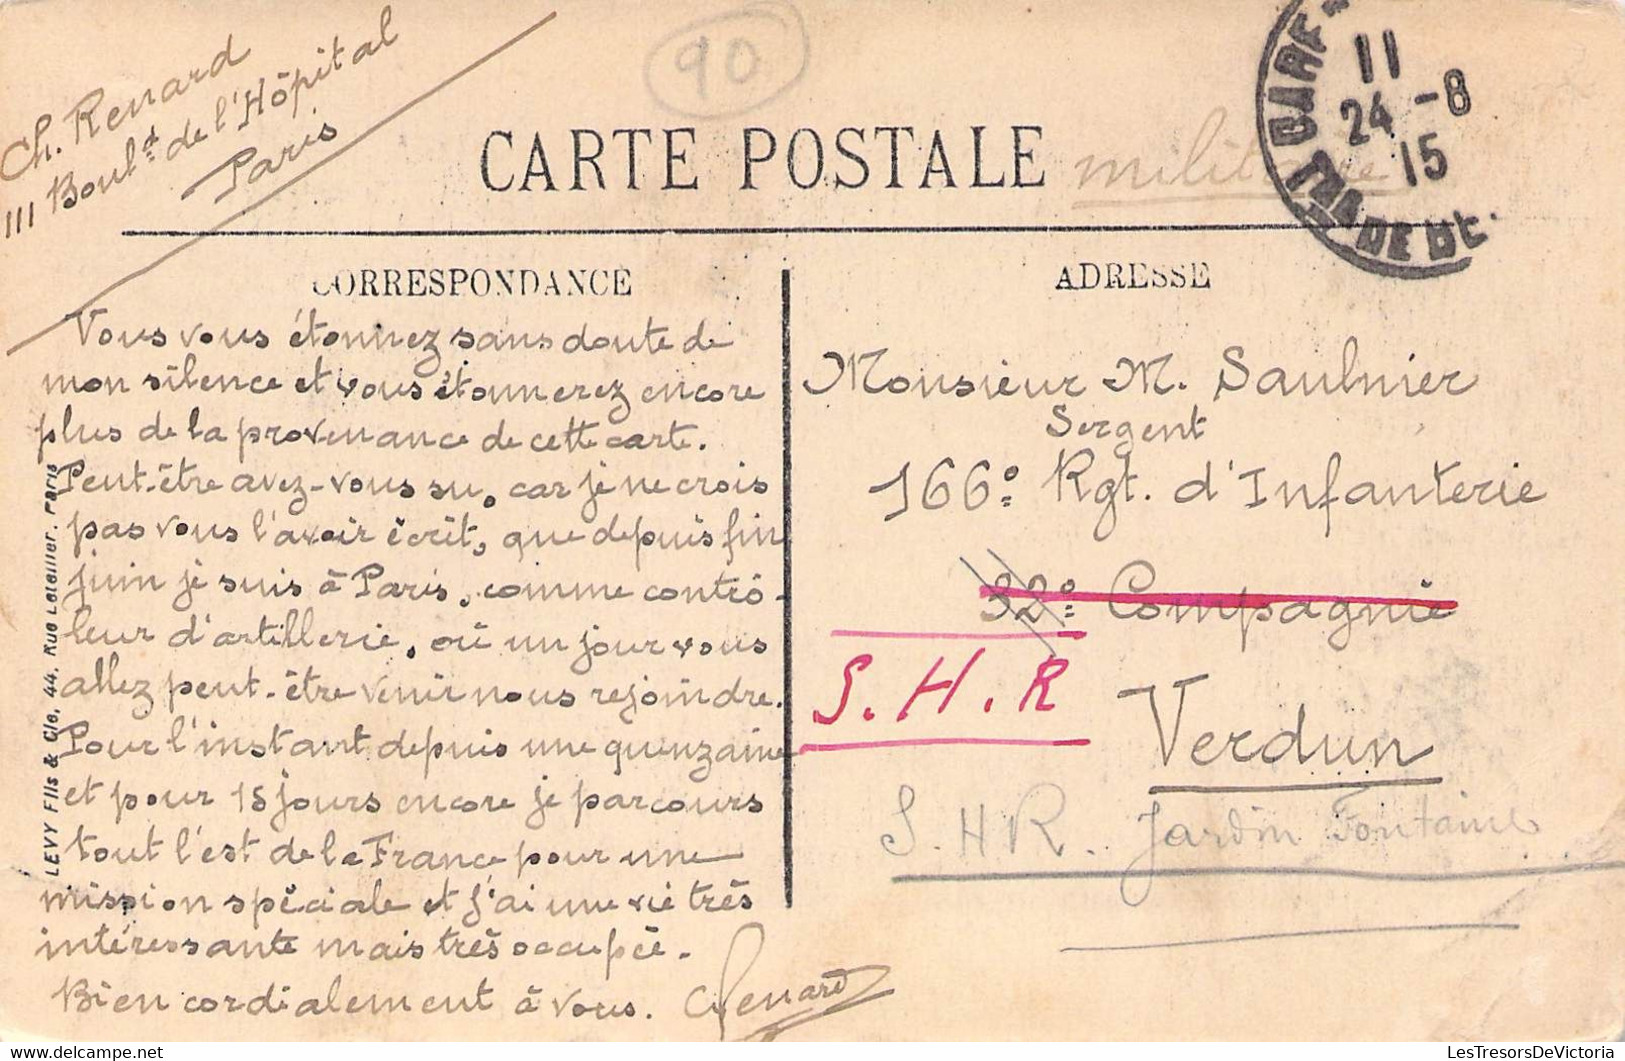 Ch. Renard
111 Boul.d de l'Hôpital
Paris
90
CARTE POSTALE militaire
11
24 -8
15
CORRESPONDANCE
Vous vous étonnez sans doute de
mon silence et vous étonnerez encore
plus de la provenance de cette carte.
Peut-être avez-vous su, car je ne crois
pas vous l'avoir écrit, que depuis fin
juin je suis à Paris, comme contrô-
leur d'artillerie, où un jour vous
allez peut-être venir nous rejoindre.
Pour l'instant depuis une quinzaine
et pour 15 jours encore je parcours
tout l'est de la France pour une
mission spéciale et j'ai une vie très
intéressante mais très occupée.
Bien cordialement à vous. CRenard
LEVY Fils & Cie, 44, Rue Letellier. Paris
ADRESSE
Monsieur M. Saulnier
Sergent
166e Rgt. d'Infanterie
32e Compagnie
S.H.R
Verdun
S.H.R. Jardin Fontaine
LesTresorsDeVictoria